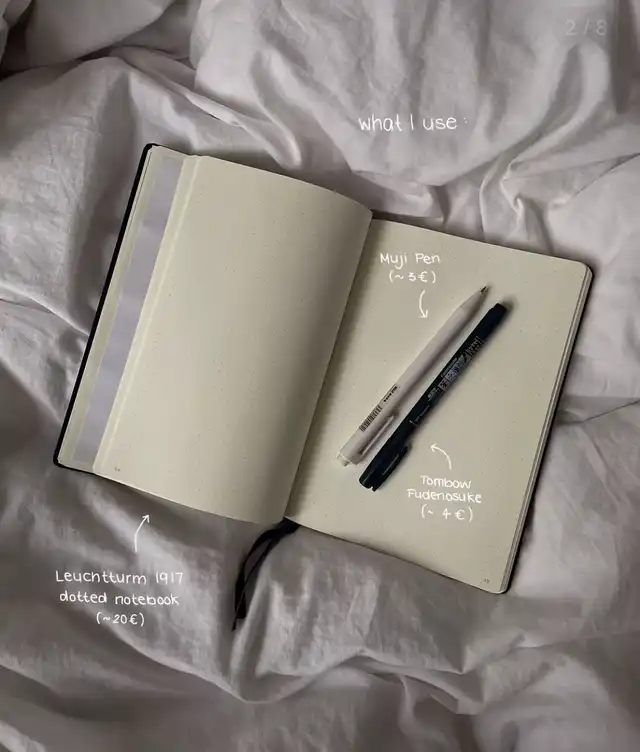 2/8
what I use:
Muji Pen
(~3€)
Tombow
Fudenosuke
(~4€)
Leuchtturm 1917
dotted notebook
(~20€)